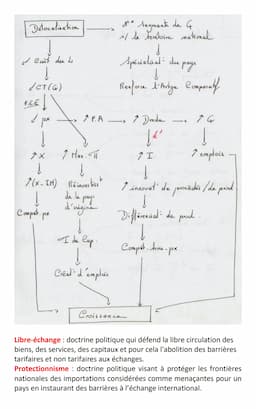 Délocalisation
N^lle segments de G
s/ le territoire national
↓ Coût du L
Spécialisat° du pays
↓ CT(G)
Renforce l'Avtge Comparatif
↓ px → ↑ P.A → ↑ Dmde → ↑ G
↑ X
↑ Max. π
↑ I.
↑ emplois
↑ (X-IM)
Réinvestist
de le pays
d'origine
↑ innovat° de procédés / de prod.
Compét. px
Différenciat° de prod.
I de Cap.
Compét. hors. px
Créat° d'emplois
Croissance
Libre-échange : doctrine politique qui défend la libre circulation des
biens, des services, des capitaux et pour cela l'abolition des barrières
tarifaires et non tarifaires aux échanges.
Protectionnisme : doctrine politique visant à protéger les frontières
nationales des importations considérées comme menaçantes pour un
pays en instaurant des barrières à l'échange international.